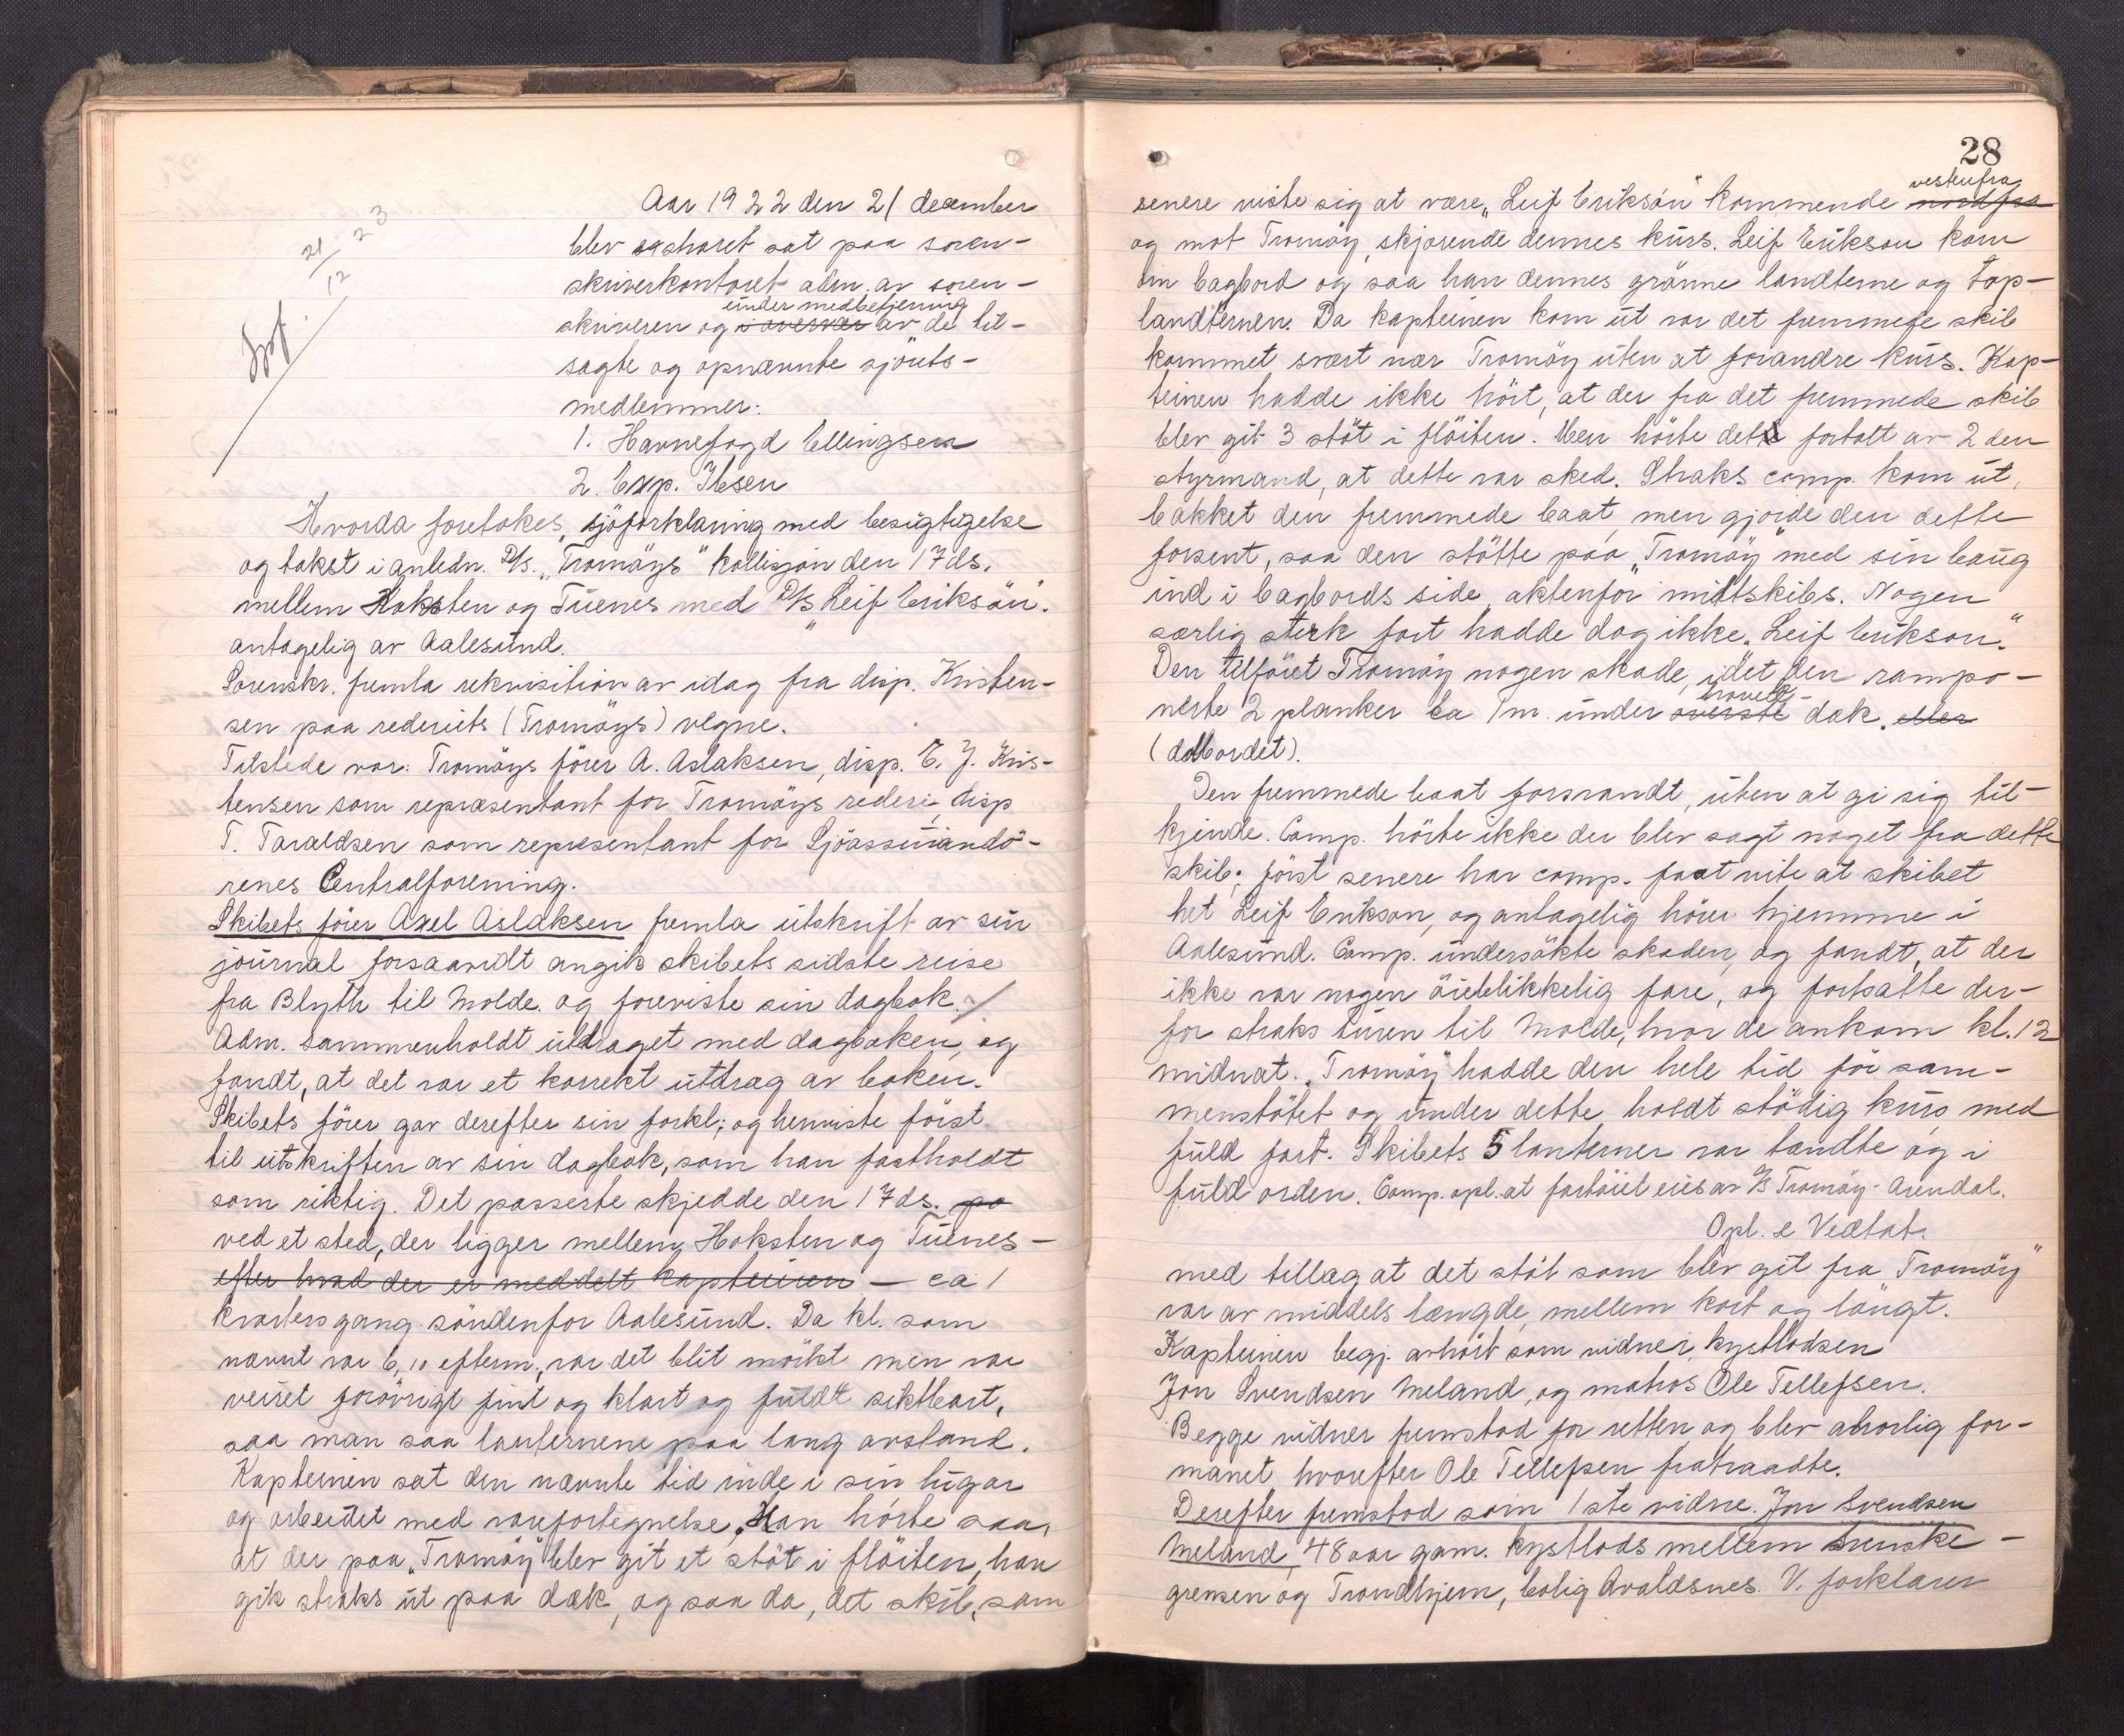 21/12 23
Aar 1922 den 21 december
blev sjøret sat paa soren-
skriverkontoret adm. av soren-
under medbetjening
skriveren og i overvær av de til-
sagte og opnævnte sjörets-
medlemmer:
1. Havnefogd Ellingsen
2. Exp. Ibsen
Hvorda foretokes sjöforklaring med besigtigelse
og takst i anledn. D/s. "Tromöys" kollisjon den 17 ds.
mellem Hoksten og Tuenes med D/s "Leif Erikson".
antagelig av Aalesund.
Sorenskr. fremla rekvisition av idag fra disp. Kristen-
sen paa rederiets (Tromöys) vegne.
Tilstede var: Tromöys förer A. Aslaksen, disp. E. J. Kris-
tensen som repræsentant for Tromöys rederi, disp
T. Taraldsen som representant for Sjöassurandö-
renes Centralforening.
Skibets förer Axel Aslaksen fremla utskrift av sin
journal forsaavidt angik skibets sidste reise
fra Blyth til Molde. og foreviste sin dagbok.
Adm. sammenholdt utdraget med dagboken, og
fandt, at det var et korrekt utdrag av boken.
Skibets förer gav derefter sin forkl; og henviste först
til utskriften av sin dagbok, som han fastholdt
som riktig. Det passerte skjedde den 17 ds. pa
ved et sted, der ligger mellem Hoksten og Tuenes –
efter hvad der er meddelt kapteinen – ca 1
kvarters gang söndenfor Aalesund. Da kl. som
nævnt var 6,10 efterm., var det blit mörkt men var
veiret forövrigt fint og klart og fuldt siktbart,
saa man saa lanternene paa lang avstand.
Kapteinen sat den nævnte tid inde i sin lugar
og arbeidet med varefortegnelse. Han hörte saa,
at der paa "Tromöy" blev git et stöt i flöiten, han
gik straks ut paa dæk, og saa da, det skib, som
28
vestenfra
senere viste sig at være "Leif Erikson" kommende nordfra
og mot Tromöy, skjærende dennes kurs. Leif Erikson kom
om bagbord og saa han dennes grönne landterne og top-
landternen. Da kapteinen kom ut var det fremmede skib
kommet svært nær Tromöy uten at forandre kurs. Kap-
teinen hadde ikke hört, at der fra det fremmede skib
blev git 3 stöt i flöiten. Men hörte det fortalt av 2 den
styrmand, at dette var sked. Straks comp. kom ut,
bakket den fremmede baat, men gjorde den dette
forsent, saa den stötte paa "Tromöy" med sin baug
ind i bagbords side, aktenfor midtskibs. Nogen
særlig sterk fart hadde dog ikke "Leif Erikson".
Den tilföiet Tromöy nogen skade, idet den rampo-
nerte 2 planker ca 1 m. under overste dæk. eller
(dolbordet).
Den fremmede baat forsvandt, uten at gi sig til-
kjende. Comp. hörte ikke der blev sagt noget fra dette
skib; först senere har comp. faat vite at skibet
het Leif Erikson, og antagelig hörer hjemme i
Aalesund. Comp. undersökte skaden, og fandt, at der
ikke var nogen öieblikkelig fare, og fortsatte der-
for straks turen til Molde, hvor de ankom kl. 12
midnat. "Tromöy" hadde den hele tid för sam-
menstötet og under dette holdt stödig kurs med
fuld fart. Skibets 5 lanterner var tændte og i
fuld orden. Comp. opl. at fartöiet eies av A/S Tromöy - Arendal.
Opl. e Vedtat.
med tillæg at det stöt som blev git fra "Tromöy"
var av middels længde, mellem kort og langt.
Kapteinen begj. avhört som vidner, kystlodsen
Jon Svendsen Meland, og matros Ole Tellefsen.
Begge vidner fremstod for retten og blev alvorlig for-
manet hvorefter Ole Tellefsen fratraadte.
Derefter fremstod som 1ste vidne Jon Svendsen
Meland, 48 aar gam. kystlods mellem svenske-
grensen og Trondhjem, bolig Avaldsnes. V. forklarer